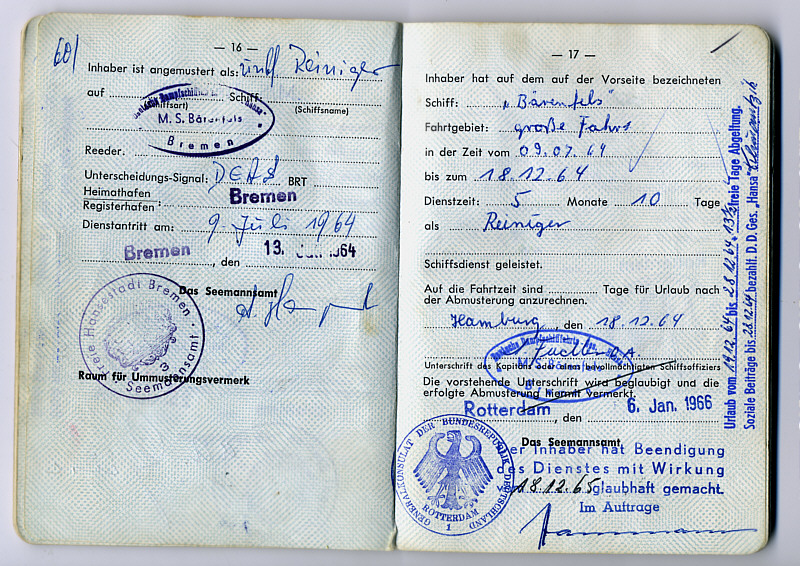 60/
— 16 —
Inhaber ist angemustert als: Reiniger
auf Schiff
(Schiffsart) (Schiffsname)
M. S. Bärenfels
Bremen
Reeder:
Unterscheidungs-Signal: DEAS BRT
Heimathafen
Registerhafen: Bremen
Dienstantritt am: 9. Juli 1964
Bremen, den 13. Juli 1964
Das Seemannsamt
Freie Hansestadt Bremen
3
Seemannsamt
Raum für Ummusterungsvermerk
— 17 —
Inhaber hat auf dem auf der Vorseite bezeichneten
Schiff: „Bärenfels"
Fahrtgebiet: große Fahrt
in der Zeit vom 09.07.64
bis zum 18.12.64
Dienstzeit: 5 Monate 10 Tage
als Reiniger
Schiffsdienst geleistet.
Auf die Fahrtzeit sind Tage für Urlaub nach
der Abmusterung anzurechnen.
Hamburg, den 18.12.64
M. S. Bärenfels
Unterschrift des Kapitäns oder eines bevollmächtigten Schiffsoffiziers
Die vorstehende Unterschrift wird beglaubigt und die
erfolgte Abmusterung hiermit vermerkt.
Rotterdam, den 6. Jan. 1966
Das Seemannsamt
Der Inhaber hat Beendigung
des Dienstes mit Wirkung
18.12.65 glaubhaft gemacht.
Im Auftrage
GENERALKONSULAT DER BUNDESREPUBLIK DEUTSCHLAND
ROTTERDAM
1
Urlaub vom 19.12.64 bis 28.12.64 13½ freie Tage Abgeltung,
Soziale Beiträge bis 28.12.64 bezahlt. D. D. Ges. „Hansa"